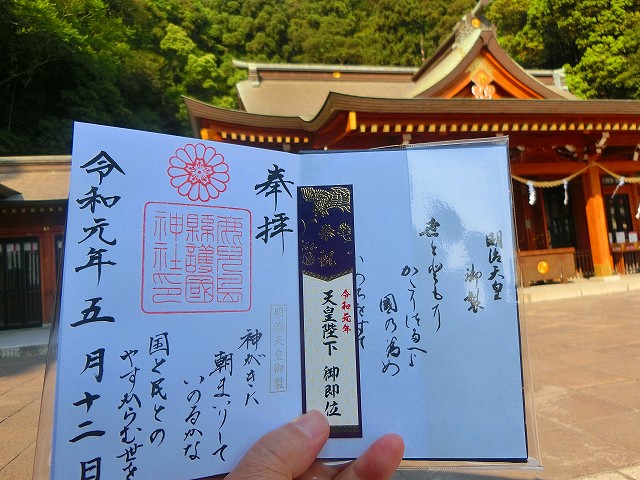 明治天皇
御製
世とともに
かたりつたへよ
国の為め
いのちをすて
令和元年
天皇陛下 御即位
奉拝
鹿児島
縣護國
神社印
明治天皇御製
神がきに
朝まゐりして
いのるかな
国と民との
やすからむ世を
令和元年五月十二日